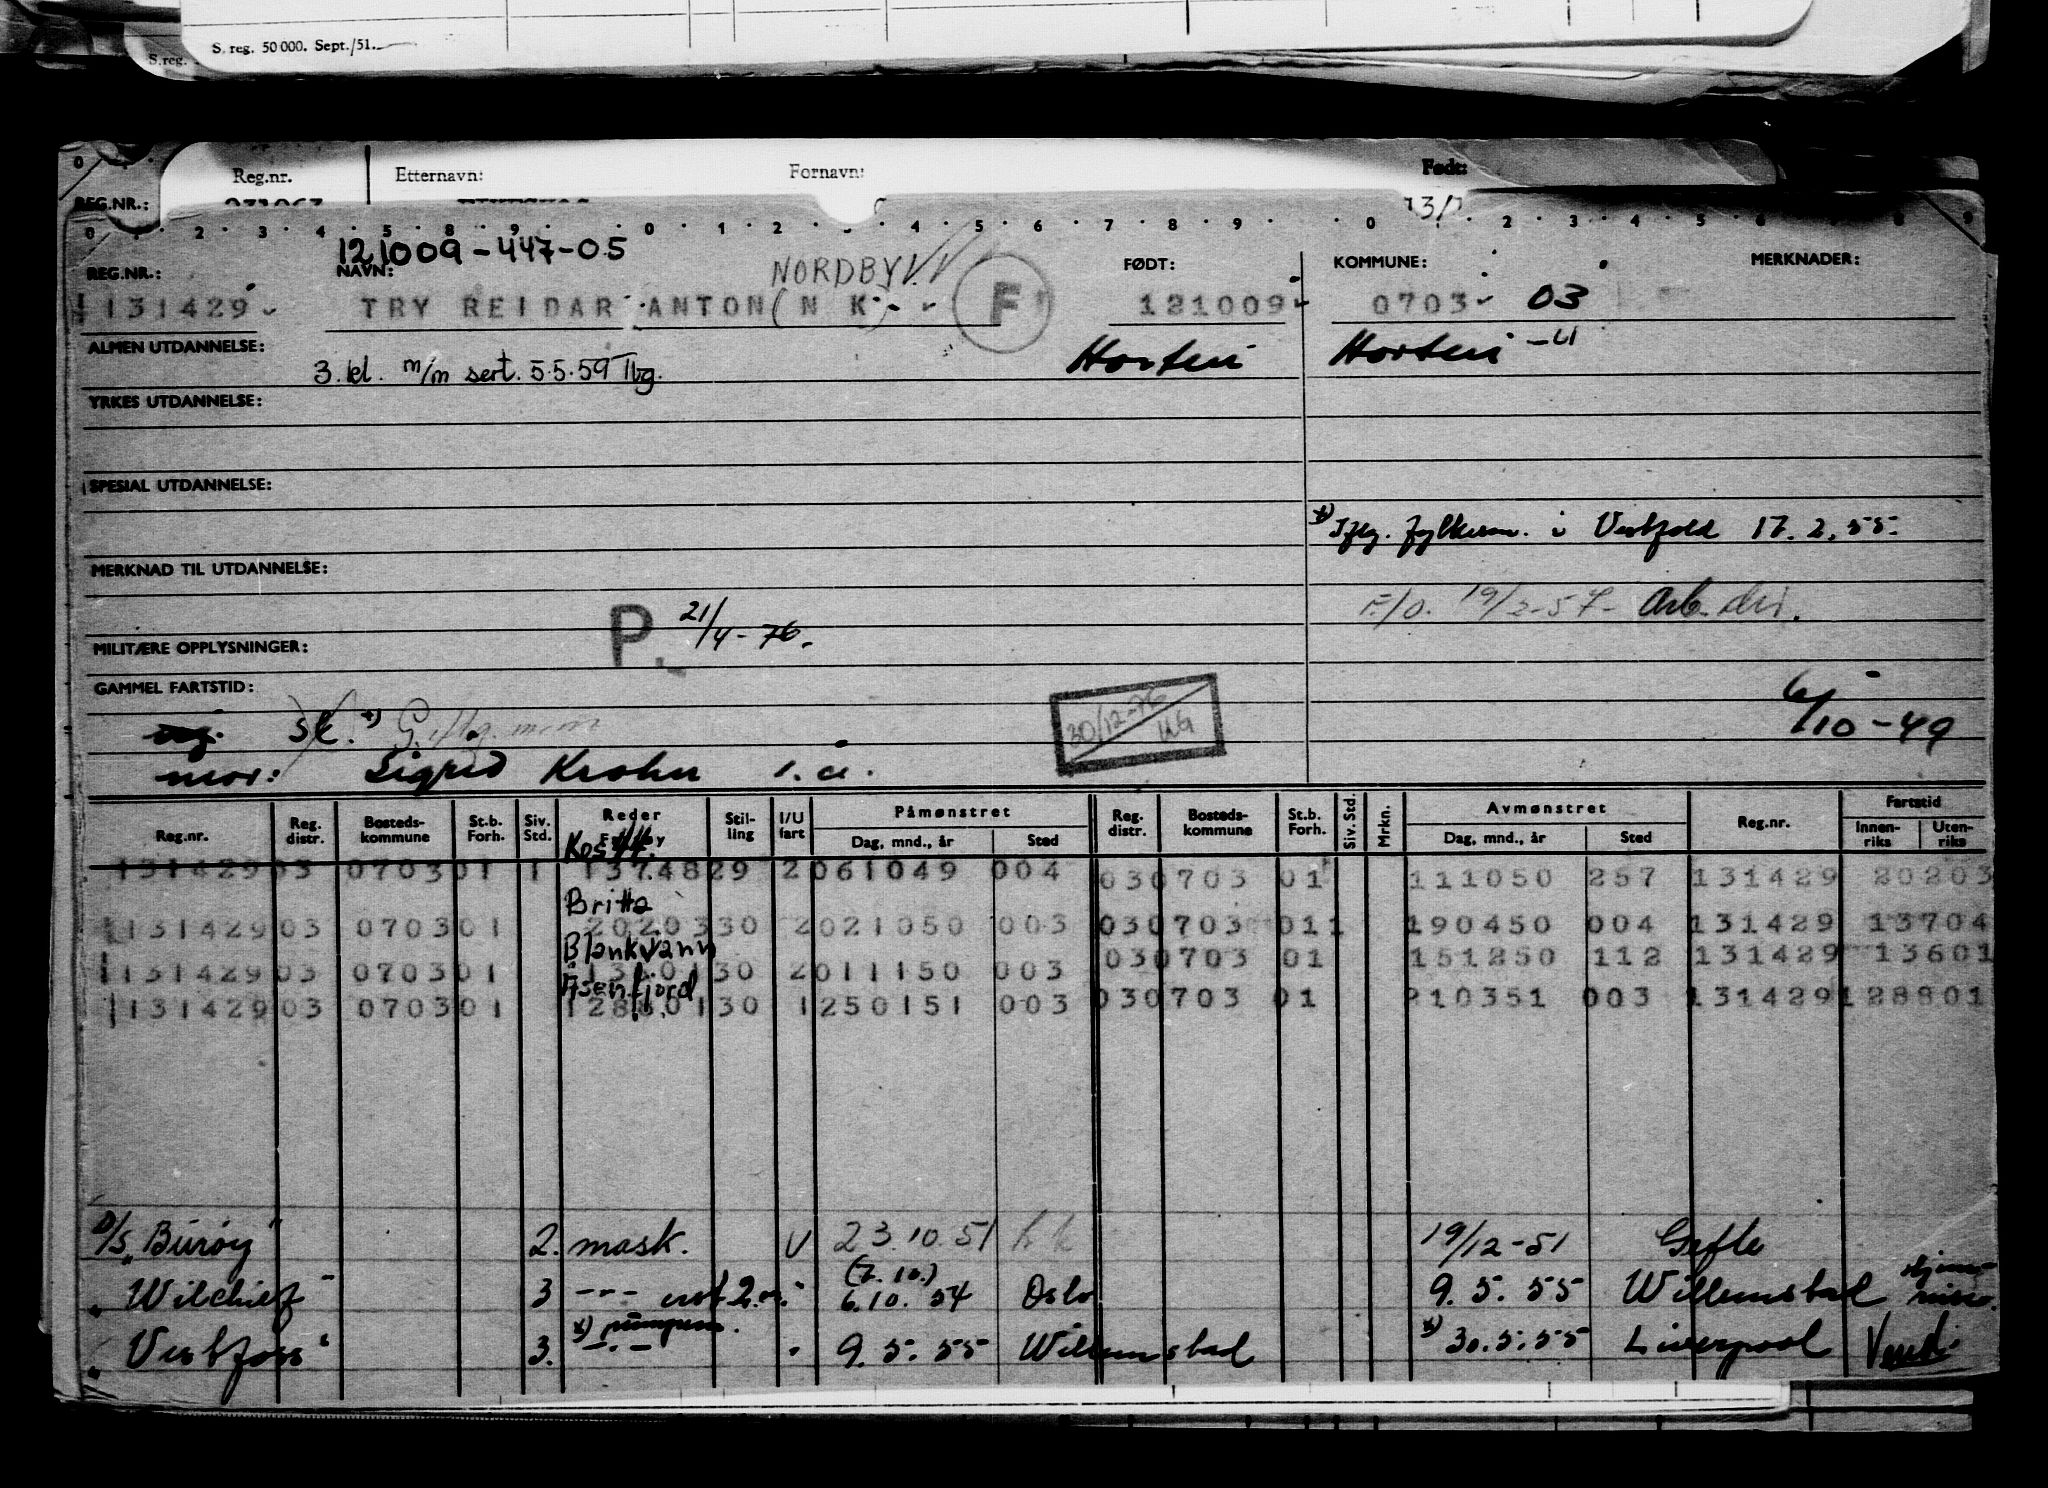 S. reg. 50 000. Sept./51.
S.reg.
Reg.nr. Etternavn: Fornavn: Født:
REG.NR.: 13/
0 1 2 3 4 5 8 9 0 1 2 3 4 5 6 7 8 9 0 2 3 4 5 6 8 9
121009-447-05
REG.NR.: NAVN: NORDBY FØDT: KOMMUNE: MERKNADER:
131429 TRY REIDAR ANTON (N K) F 121009 0703 03
ALMEN UTDANNELSE: 3. kl. m/m sert. 5.5.59 Tbg. Horten Horten
YRKES UTDANNELSE:
SPESIAL UTDANNELSE:
*) Iflg. fylkesm. i Vestfold 17.2.55.
MERKNAD TIL UTDANNELSE:
F/O. 19/2-57- Arb.dir.
P. 21/4-76.
MILITÆRE OPPLYSNINGER:
GAMMEL FARTSTID:
30/12-76
6/10-49
sk. *)
mor: Sigrid Krohn i.a.
Reg.nr. Reg. distr. Bosteds-kommune St.b. Forh. Siv. Std. Reder Stil-ling I/U fart Påmønstret Reg. distr. Bosteds-kommune St.b. Forh. Siv. Std. Mrkn. Avmønstret Reg.nr. Fartstid
Dag, mnd., år Sted Dag, mnd., år Sted Innen-riks Uten-riks
131429 03 0703 01 1 1374829 2 061049 004 03 0703 01 111050 257 131429 20203
Britta
131429 03 0703 01 2020330 2 021050 003 03 0703 011 190450 004 131429 13704
Blankvann
131429 03 0703 01 30 2 011150 003 03 0703 01 151250 112 131429 13601
Åsenfjord
131429 03 0703 01 30 1 250151 003 03 0703 01 210351 003 131429 128801
D/S "Burøy" 2. mask. U 23.10.51 19/12-51 Gefle
" Wilchief " 3 --- (7.10.) 6.10.54 Oslo 9.5.55 Willemstad
" Vestfoss " 3. *) pumpem. --- " 9.5.55 Willemstad *) 30.5.55 Liverpool Vend